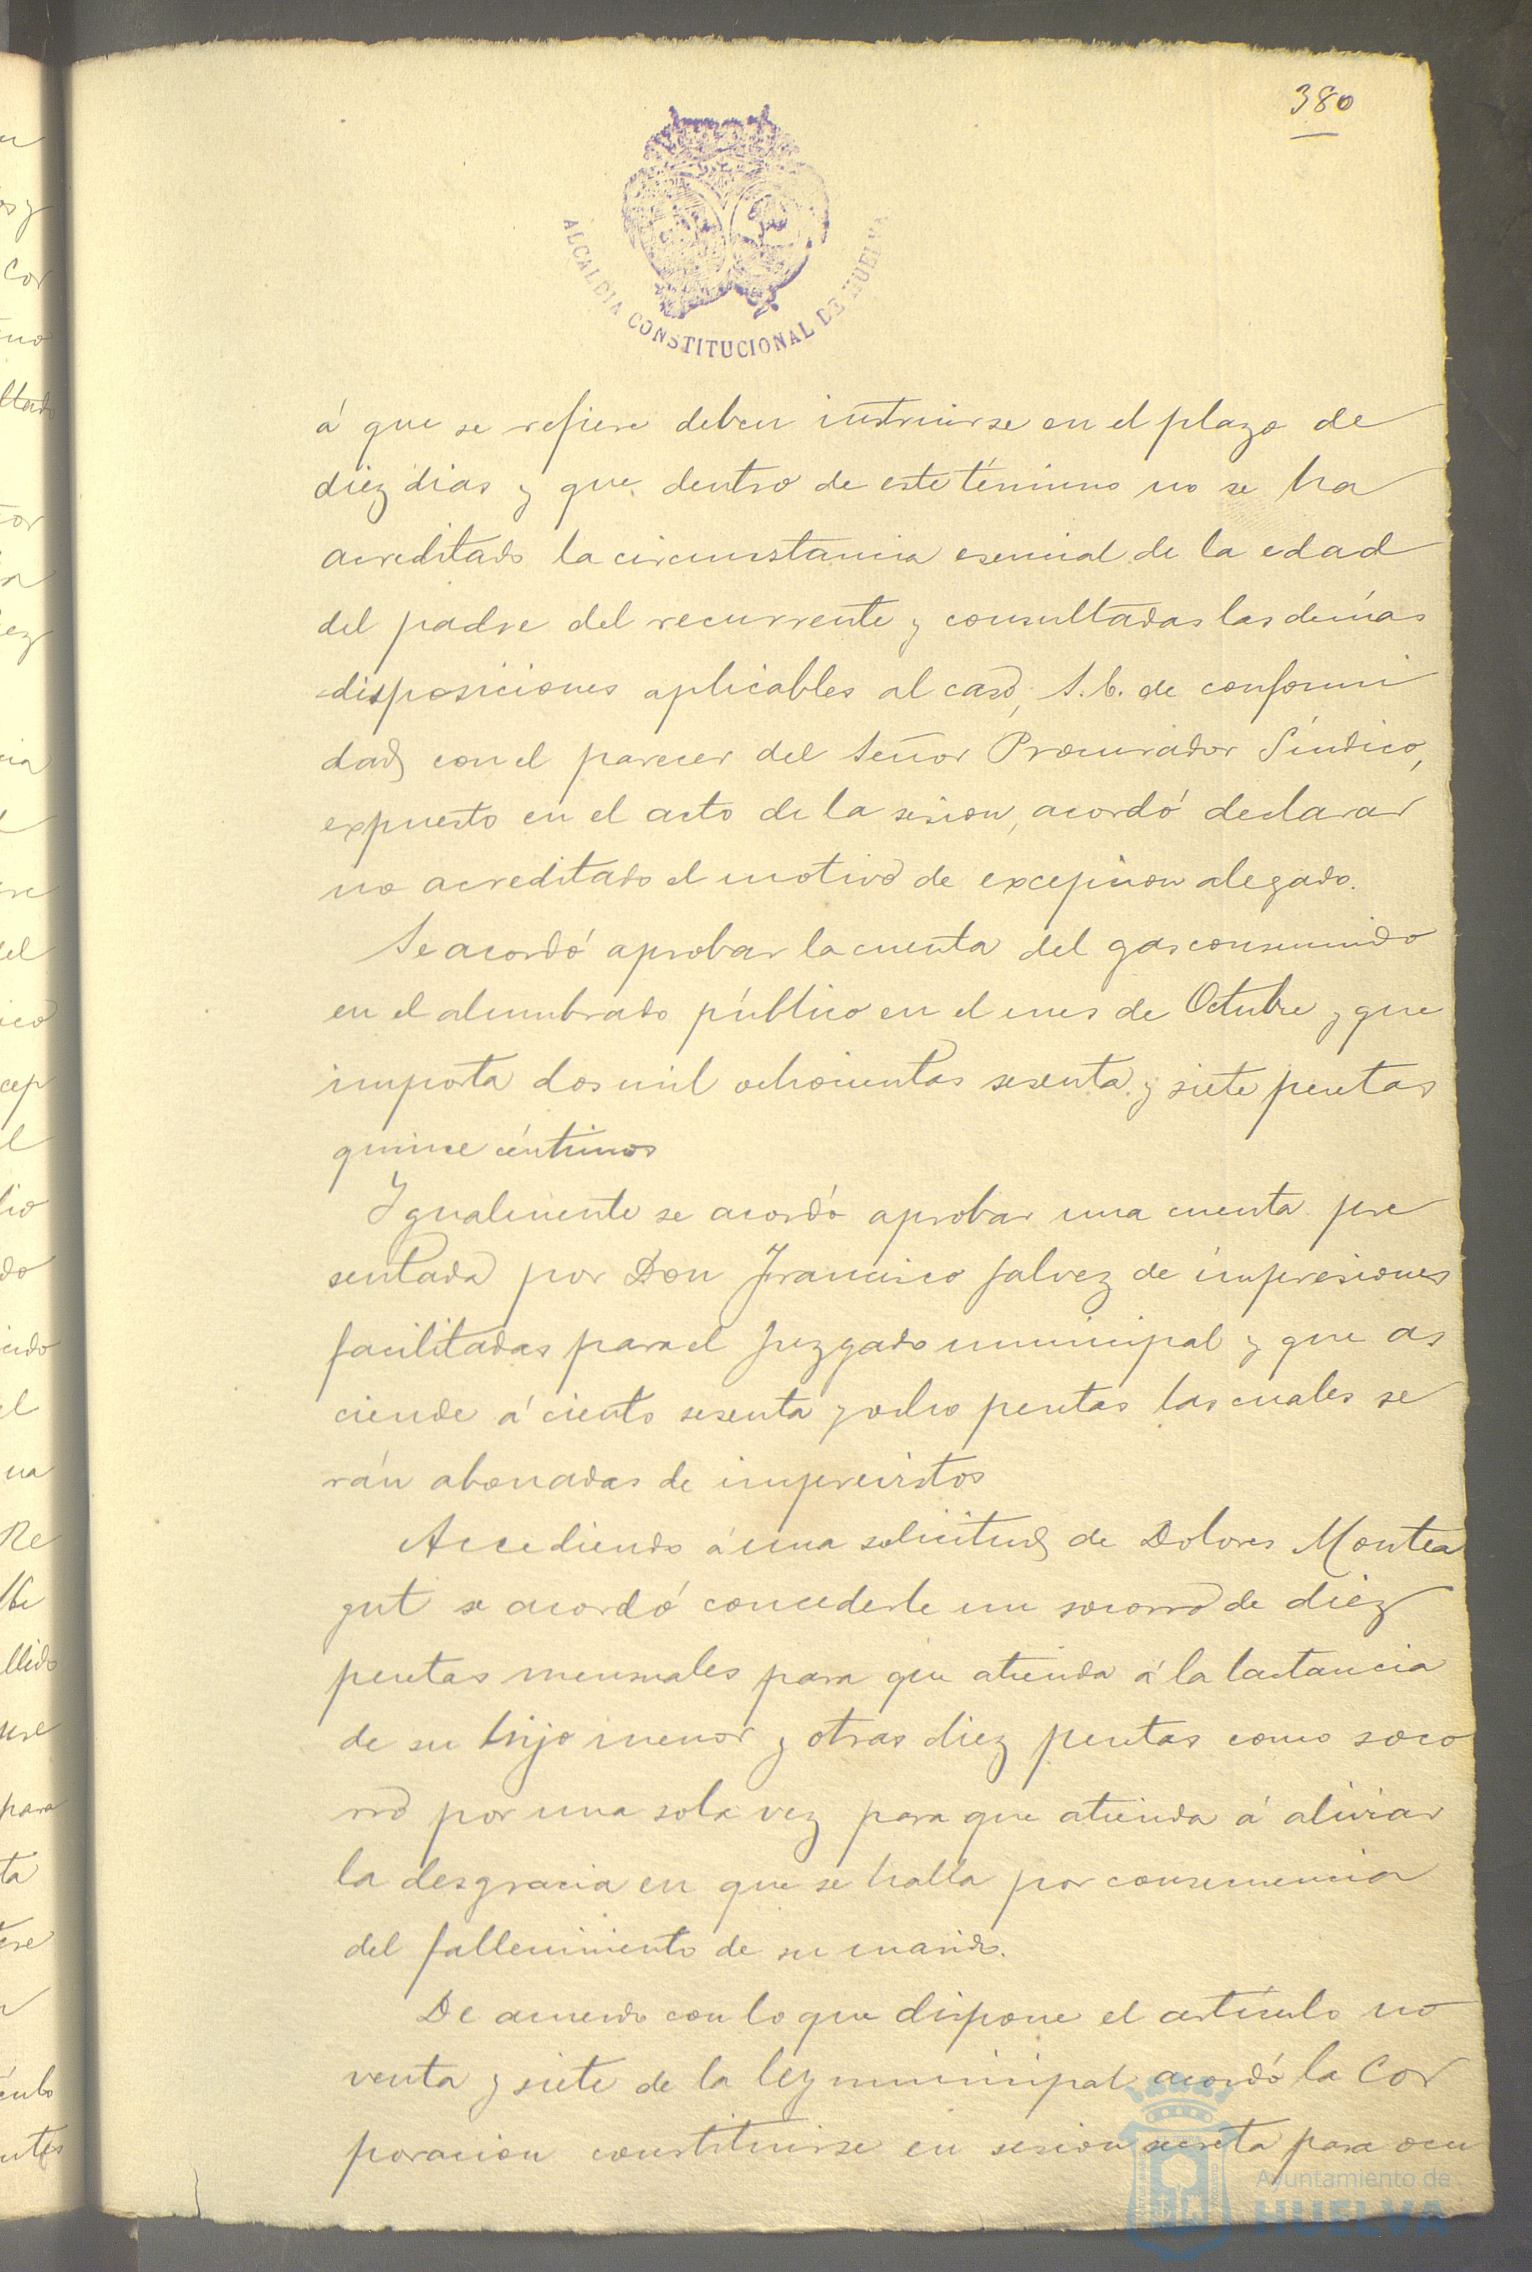 380
ALCALDIA CONSTITUCIONAL DE HUELVA
á que se refiere deben instruirse en el plazo de
diez dias y que dentro de este término no se ha
acreditado la circunstancia esencial de la edad
del padre del recurrente y consultadas las demás
disposiciones aplicables al caso, S. E. de conformi
dad con el parecer del Señor Procurador Síndico,
expuesto en el acto de la sesion, acordó declarar
no acreditado el motivo de excepcion alegado.
Se acordó aprobar la cuenta del gas consumido
en el alumbrado público en el mes de Octubre y que
importa dos mil ochocientas sesenta y siete pesetas
quince céntimos
Igualmente se acordó aprobar una cuenta pre
sentada por Don Francisco Galvez de impresiones
facilitadas para el Juzgado municipal y que as
ciende á ciento sesenta y ocho pesetas las cuales se
rán abonadas de imprevistos
Accediendo á una solicitud de Dolores Montea
gut se acordó concederle un socorro de diez
pesetas mensuales para que atienda á la lactancia
de su hijo menor y otras diez pesetas como soco
rro por una sola vez para que atienda á aliviar
la desgracia en que se halla por consecuencia
del fallecimiento de su marido.
De acuerdo con lo que dispone el artículo no
venta y siete de la ley municipal acordó la Cor
poracion constituirse en sesion secreta para ocu
Ayuntamiento de
HUELVA